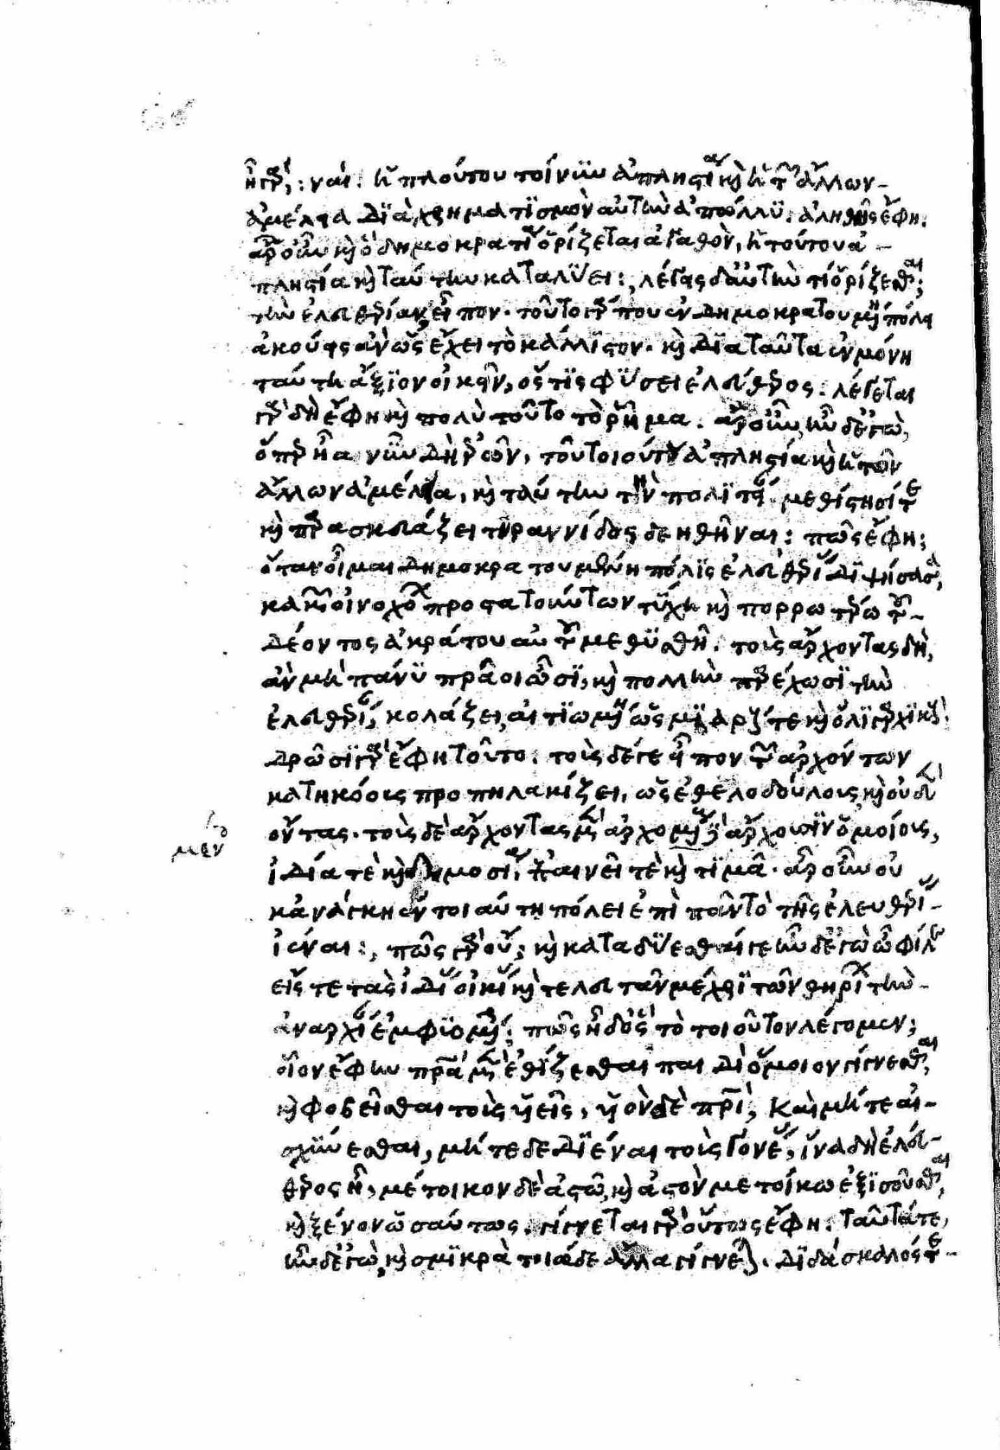 ἦ γάρ; : ναί : ἡ πλούτου τοίνυν ἀπληστία καὶ ἡ τῶν ἄλλων
ἀμέλεια διὰ χρηματισμὸν αὐτὴν ἀπώλλυ : ἀληθῆ ἔφη :
ἆρ' οὖν καὶ ὃ δημοκρατία ὁρίζεται ἀγαθὸν, ἡ τούτου ἀ
πληστία καὶ ταύτην καταλύει : λέγεις δ' αὐτὴν τί ὁρίζεσθαι;
τὴν ἐλευθερίαν εἶπον · τοῦτο γάρ που ἐν δημοκρατουμένη πόλει
ἀκούσης ἂν ὡς ἔχει τὸ κάλλιστον · καὶ διὰ ταῦτα ἐν μόνη
ταύτη ἄξιον οἰκεῖν, ὅστις φύσει ἐλεύθερος : λέγεται
γὰρ δὴ ἔφη καὶ πολὺ τοῦτο τὸ ῥῆμα : ἆρ' οὖν ἦν δ' ἐγὼ,
ὅπερ ἦα νῦν δὴ ἐρῶν, ἡ τοῦ τοιούτου ἀπληστία καὶ ἡ τῶν
ἄλλων ἀμέλεια, καὶ ταύτην τὴν πολιτείαν μεθίστησί τε
καὶ παρασκευάζει τυραννίδος δεηθῆναι : πῶς ἔφη;
ὅταν οἶμαι δημοκρατουμένη πόλις ἐλευθερίας διψήσασα,
κακῶν οἰνοχόων προστατούντων τύχη καὶ πορρωτέρω τοῦ
δέοντος ἀκράτου αὐτῆς μεθυσθῆ, τοὺς ἄρχοντας δὴ,
ἂν μὴ πάνυ πρᾶοι ὦσι, καὶ πολλὴν παρέχωσι τὴν
ἐλευθερίαν, κολάζει, αἰτιωμένη ὡς μιαρούς τε καὶ ὀλιγαρχικούς :
δρῶσι γὰρ ἔφη τοῦτο : τοὺς δέ γε εἶπον τῶν ἀρχόντων
κατηκόους προπηλακίζει, ὡς ἐθελοδούλους καὶ οὐδὲν
ὄντας · τοὺς δὲ ἄρχοντας μὲν ἀρχομένοις ἄρχουσιν ὁμοίους,
μεν
ἰδία τὲ καὶ δημοσία, ἐπαινεῖ τὲ καὶ τιμᾶ · ἆρ' οὖν οὐ
κἀνάγκη ἐν τοιαύτη πόλει ἐπὶ πᾶν τὸ τῆς ἐλευθερίας
ἰέναι : πῶς γὰρ οὔ; καὶ καταδύεσθαί γε ἦν δ' ἐγὼ ὦ φίλε
εἴς τε τὰς ἰδίας οἰκίας καὶ τελευτᾶν μέχρι τῶν θηρίων τὴν
ἀναρχίαν ἐμφυομένην; πῶς ἦ δ' ὃς τὸ τοιοῦτον λέγομεν;
οἷον ἔφην πατέρα μὲν ἐθίζεσθαι παιδὶ ὅμοιον γίγνεσθαι,
καὶ φοβεῖσθαι τοὺς υἱεῖς, υἱὸν δὲ πατρὶ, καὶ μήτε αἰ
σχύνεσθαι, μήτε δεδιέναι τοὺς γονέας, ἵνα δὴ ἐλεύ
θερος ἦ, μέτοικον δὲ ἀστῶ, καὶ ἀστὸν μετοίκω ἐξισοῦσθαι,
καὶ ξένον ὡσαύτως : γίγνεται γὰρ οὕτως ἔφη : ταῦτά τε,
ἦν δ' ἐγὼ, καὶ σμικρὰ τοιάδε ἄλλα γίγνεται · διδάσκαλός τε